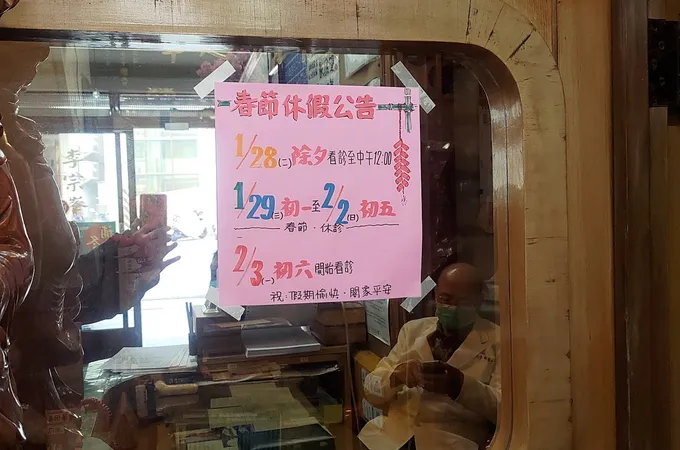 春節休假公告
1/28(二)除夕看診至中午12:00
1/29(三)初一至2/2(日)初五
春節·休診
2/3(一)初六開始看診
祝·假期愉快·闔家平安
李宗